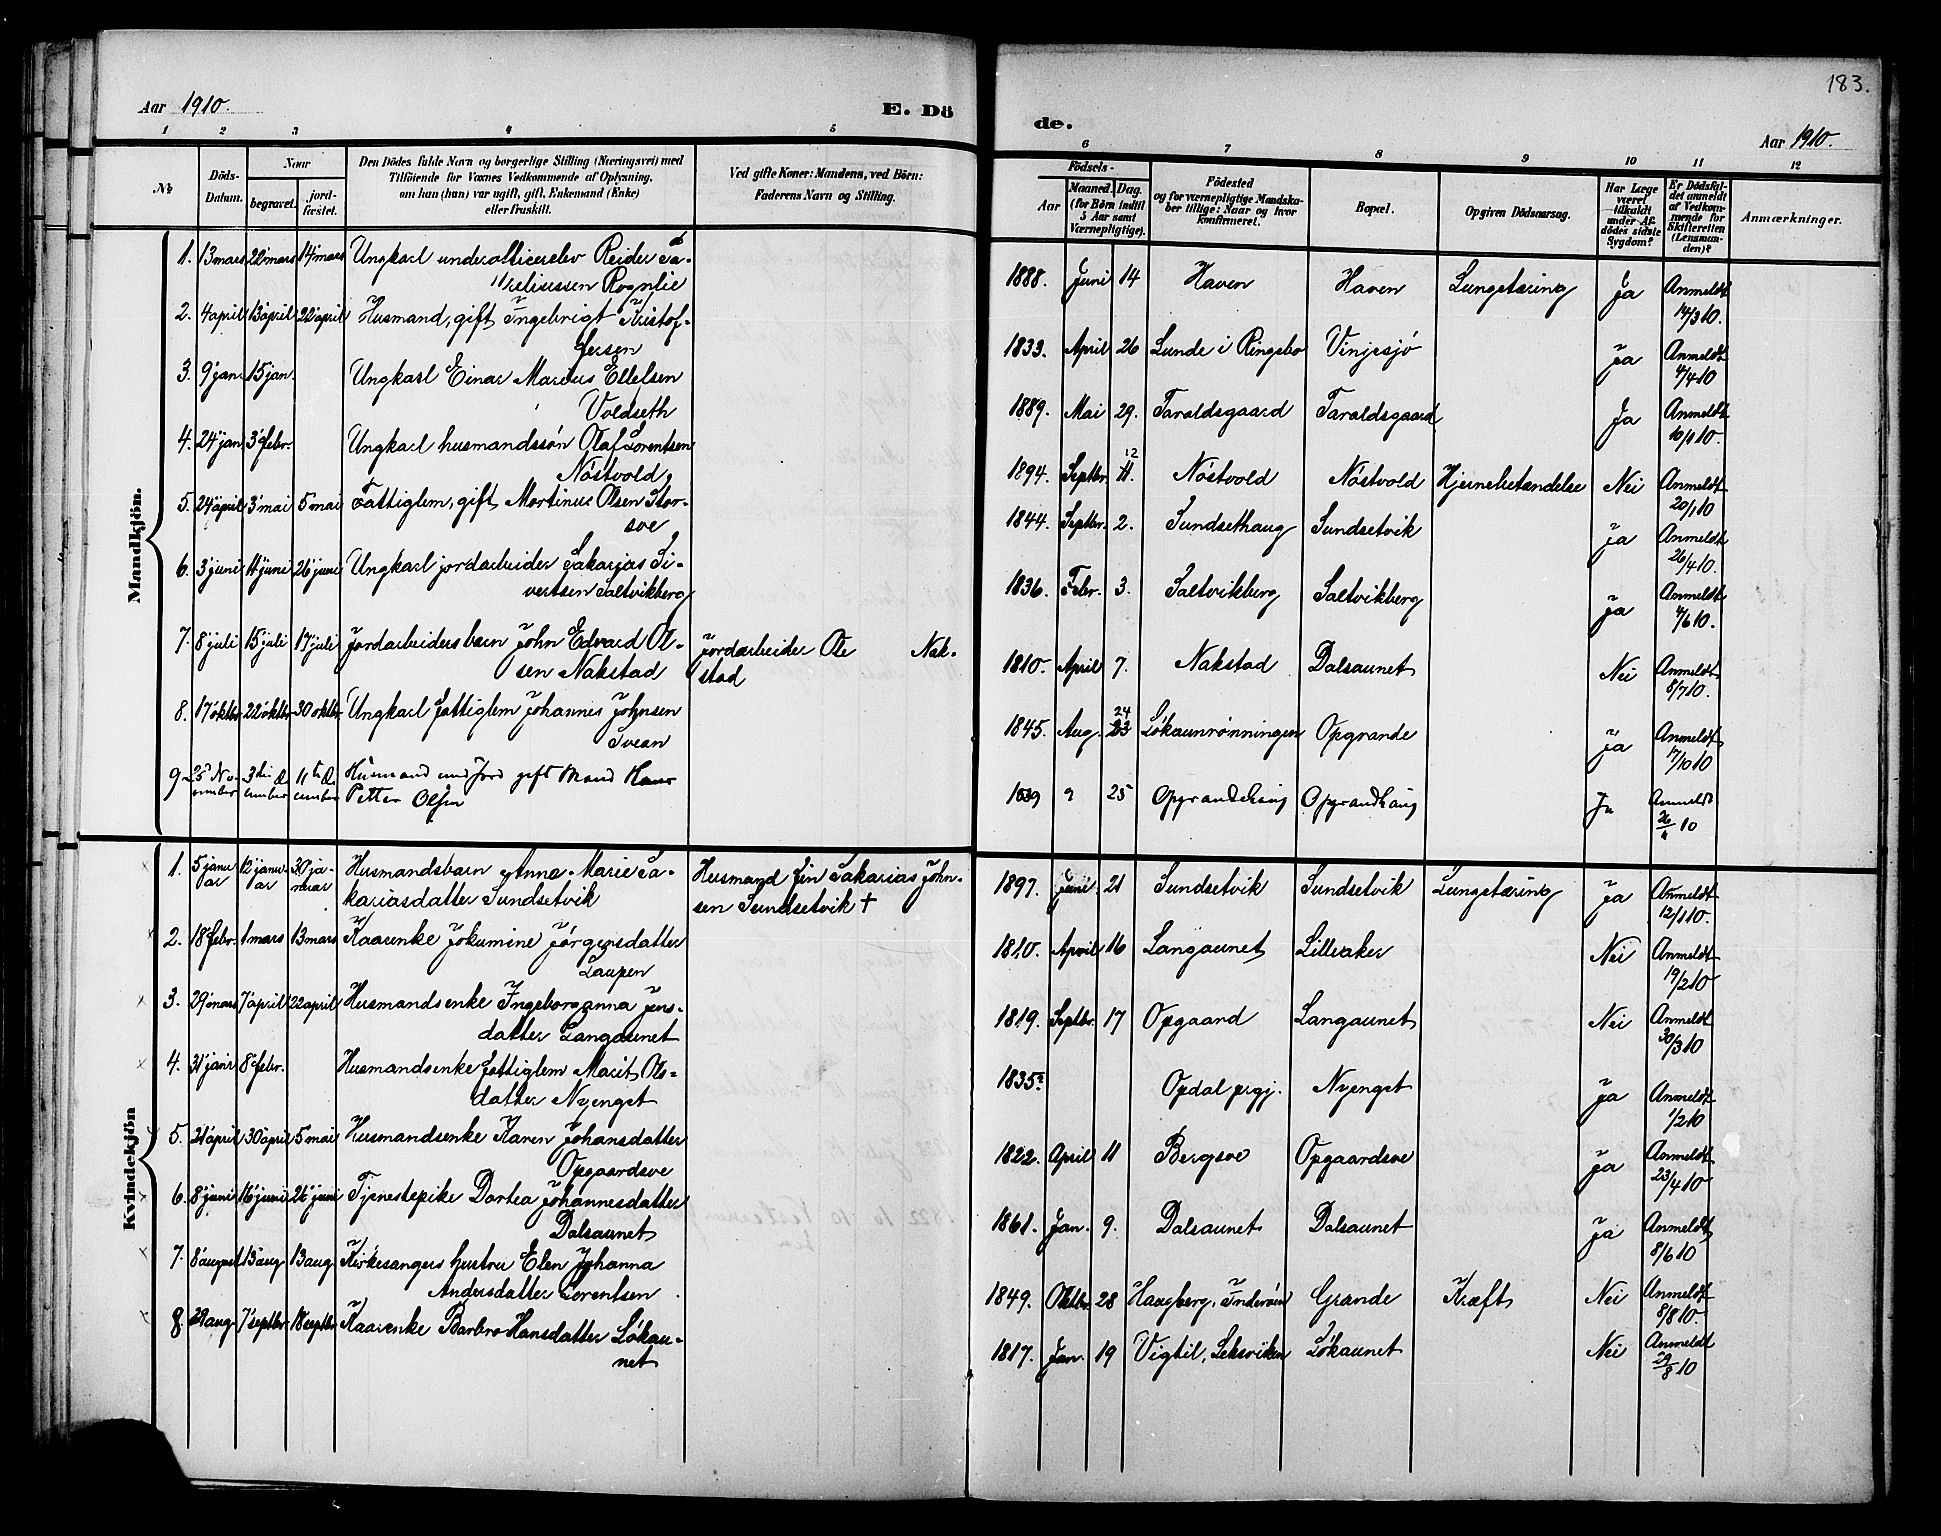 183.
Aar 1910.
E. Dö
de.
Aar 1910.
1 2 3 4 5
6 7 8 9 10 11 12
No
Döds-Datum.
Naar
begravet.
jord-fæstet.
Den Dödes fulde Navn og borgerlige Stilling (Næringsvei) med
Tilföiende for Voxnes Vedkommende af Oplysning,
om han (hun) var ugift, gift, Enkemand (Enke)
eller fraskilt.
Ved gifte Koner: Mandens, ved Börn:
Faderens Navn og Stilling.
Födsels-
Aar
Maaned. Dag.
(for Börn indtil
5 Aar samt
Værnepligtige).
Födested
og for værnepligtige Mandska-
ber tillige: Naar og hvor
konfirmeret.
Bopæl.
Opgiven Dödsaarsag.
Har Læge
været
tilkaldt
under Af-
dödes sidste
Sygdom?
Er Dödsfal-
det anmeldt
af Vedkom-
mende for
Skifteretten
(Lensman-
den)?
Anmærkninger.
Mandkjön.
1. 13 mars 22 mars 14 mars Ungkarl underofficerselev Reider
reliussen Rognlie
1888. Juni 14 Haven Haven Lungetæring Ja Anmeldt
14/3 10.
2. 4 april 13 april 22 april Husmand, gift Ingebrigt Kristof-
fersen
1833. April 26 Lunde i Ringebo Vinjesjö Ja Anmeldt
4/4 10
3. 9 jan. 15 jan. Ungkarl Einar Marius Ellefsen
Voldseth
1889. Mai 29. Taraldsgaard Taraldsgaard Ja Anmeldt
10/1 10.
4. 24 jan 3 febr. Ungkarl husmandssön Olaf Lorentsen
Nöstvold
1894. Septbr. 12 11. Nöstvold Nöstvold Hjernebetændelse Nei Anmeldt
20/1 10
5. 24 april 3 mai 5 mai Fattiglem, gift Martinus Olsen Stor-
sve
1844. Septbr. 2. Sundsethaug Sundsetvik Ja Anmeldt
26/4 10.
6. 3 juni 11 juni 26 juni Ungkarl jordarbeider Sakarias Si-
vertsen Saltvikberg
1836. Febr. 3. Saltvikberg Saltvikberg Ja Anmeldt
4/6 10.
7. 8 juli 15 juli 17 juli Jordarbeidersbarn John Edvard Ol-
sen Nakstad
Jordarbeider Ole Nak-
stad
1810. April 7. Nakstad Dalsaunet Nei Anmeldt
8/7 10.
8. 17 oktbr 22 oktbr 30 oktbr Ungkarl fattiglem Johannes Johnsen
Svean
1845. Aug. 24 23 Lökaunrönningen Opgrande Ja Anmeldt
17/10 10
9 25 No-
vember 3die De-
cember 11te De-
cember Husmand med Jord gift Mand Hans
Petter Olsen
1839 9 25 Opgrandehaug Opgrandhaug Ja Anmeldt
26/11 10
Kvindekjön
1. 5 janu-
ar 12 janu-
ar 30 ja-
nuar Husmandsbarn Anna Marie Sa-
kariasdatter Sundsetvik
Husmand Fin Sakarias John-
sen Sundsetvik †
1897. Juni 21 Sundsetvik Sundsetvik Lungetæring Ja Anmeldt
12/1 10.
2. 18 febr. 1 mars 13 mars Kaarenke Jokumine Jörgensdatter
Laupen
1810. April 16 Langaunet Lilleaker Nei Anmeldt
19/2 10
3. 29 mars 7 april 22 april Husmandsenke Ingeboranna Jens-
datter Langaunet
1819. Septbr. 17 Opgaard Langaunet Nei Anmeldt
30/3 10
4. 31 janr 8 febr. Husmandsenke fattiglem Marit Ols-
datter Nyenget
1835? Opdal prgj. Nyenget Ja Anmeldt
1/2 10
5. 21 april 30 april 5 mai Husmandsenke Karen Johansdatter
Opgaardsve
1822. April 11 Bergsve Opgaardsve Ja Anmeldt
23/4 10
6. 8 juni 16 juni 26 juni Tjenestepike Dortea Johannesdatter
Dalsaunet
1861. Jan. 9. Dalsaunet Dalsaunet Ja Anmeldt
8/6 10
7. 8 august 13 aug 13 aug Kirkesangers hustru Elen Johanna
Andersdatter Lorentsen
1849. Oktbr. 28 Haugberg, Inderöen Grande Kræft Nei Anmeldt
8/8 10.
8 29 aug 7 septbr 18 septbr Kaarenke Barbro Hansdatter Lökau-
net
1817. Jan. 19 Vigtil, Leksviken Lökaunet Nei Anmeldt
29/8 10